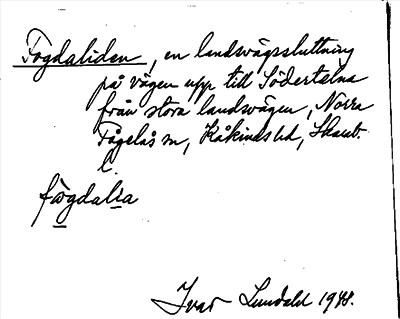 Fogdaliden, en landsvägssluttning
på vägen upp till Södertelna
från stora landsvägen, Norra
Fågelås sn, Kåkinds hd, Skarab.
l.
fωgdalia
Ivar Lundahl 1948.